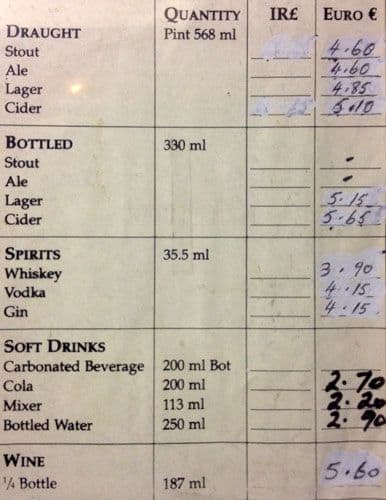 QUANTITY IR£ EURO €
DRAUGHT Pint 568 ml
Stout 4.60
Ale 4.60
Lager 4.85
Cider 5.10
BOTTLED 330 ml
Stout -
Ale -
Lager 5.15
Cider 5.65
SPIRITS 35.5 ml
Whiskey 3.90
Vodka 4.15
Gin 4.15
SOFT DRINKS
Carbonated Beverage 200 ml Bot
Cola 200 ml 2.70
Mixer 113 ml 2.20
Bottled Water 250 ml 2.90
WINE
¼ Bottle 187 ml 5.60